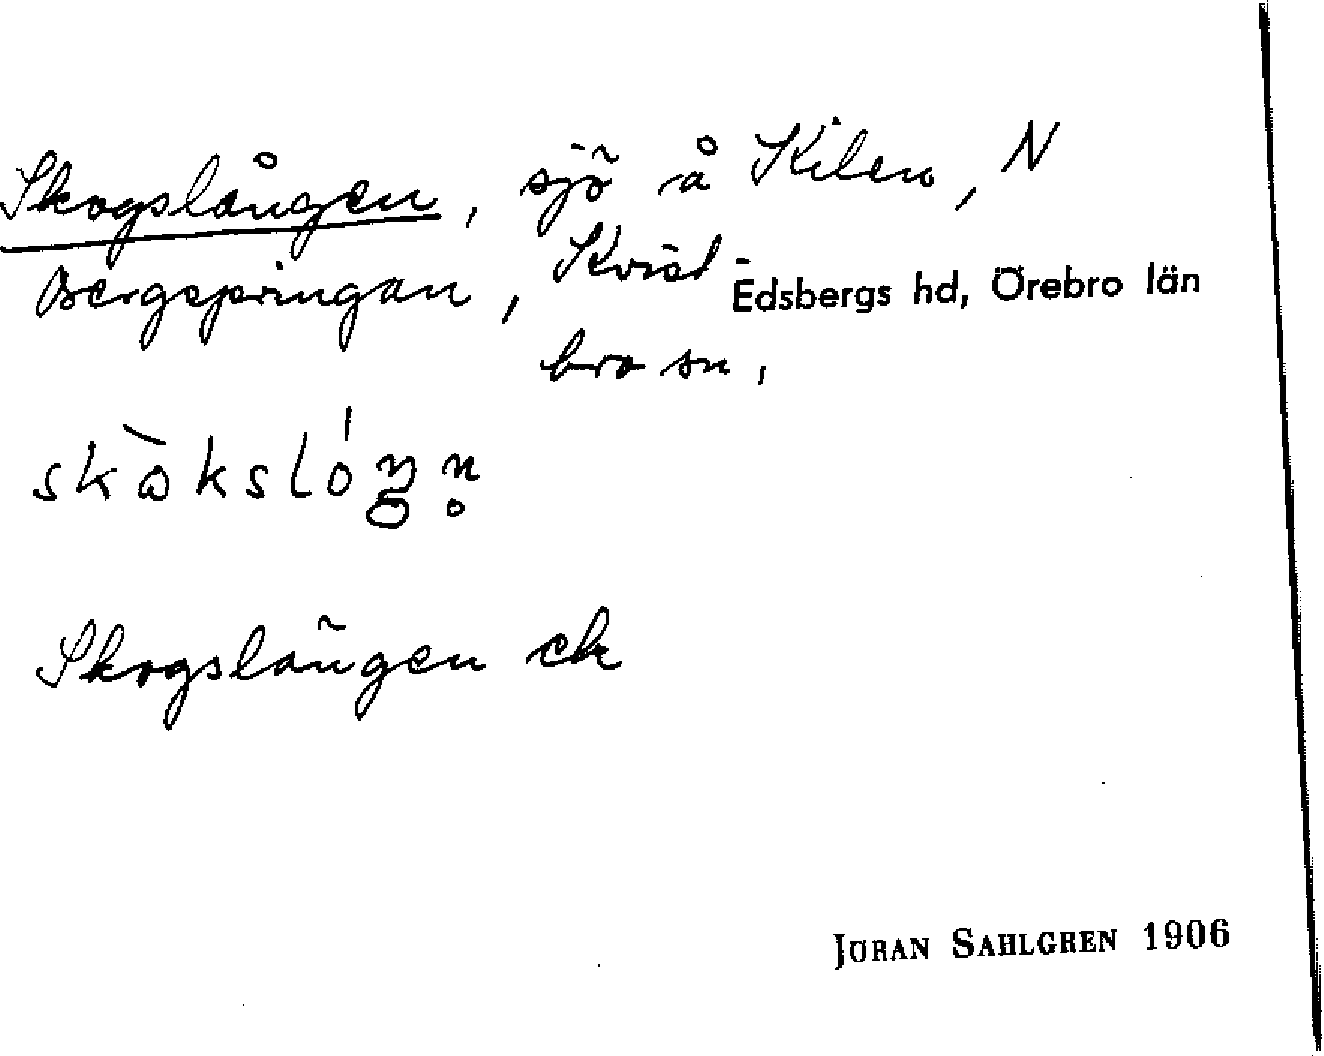 Skogslången, sjö å Kilen, N
Bergspringan, Kvist-
Edsbergs hd, Örebro län
bro sn,
Skogslängen ek
JÖRAN SAHLGREN 1906